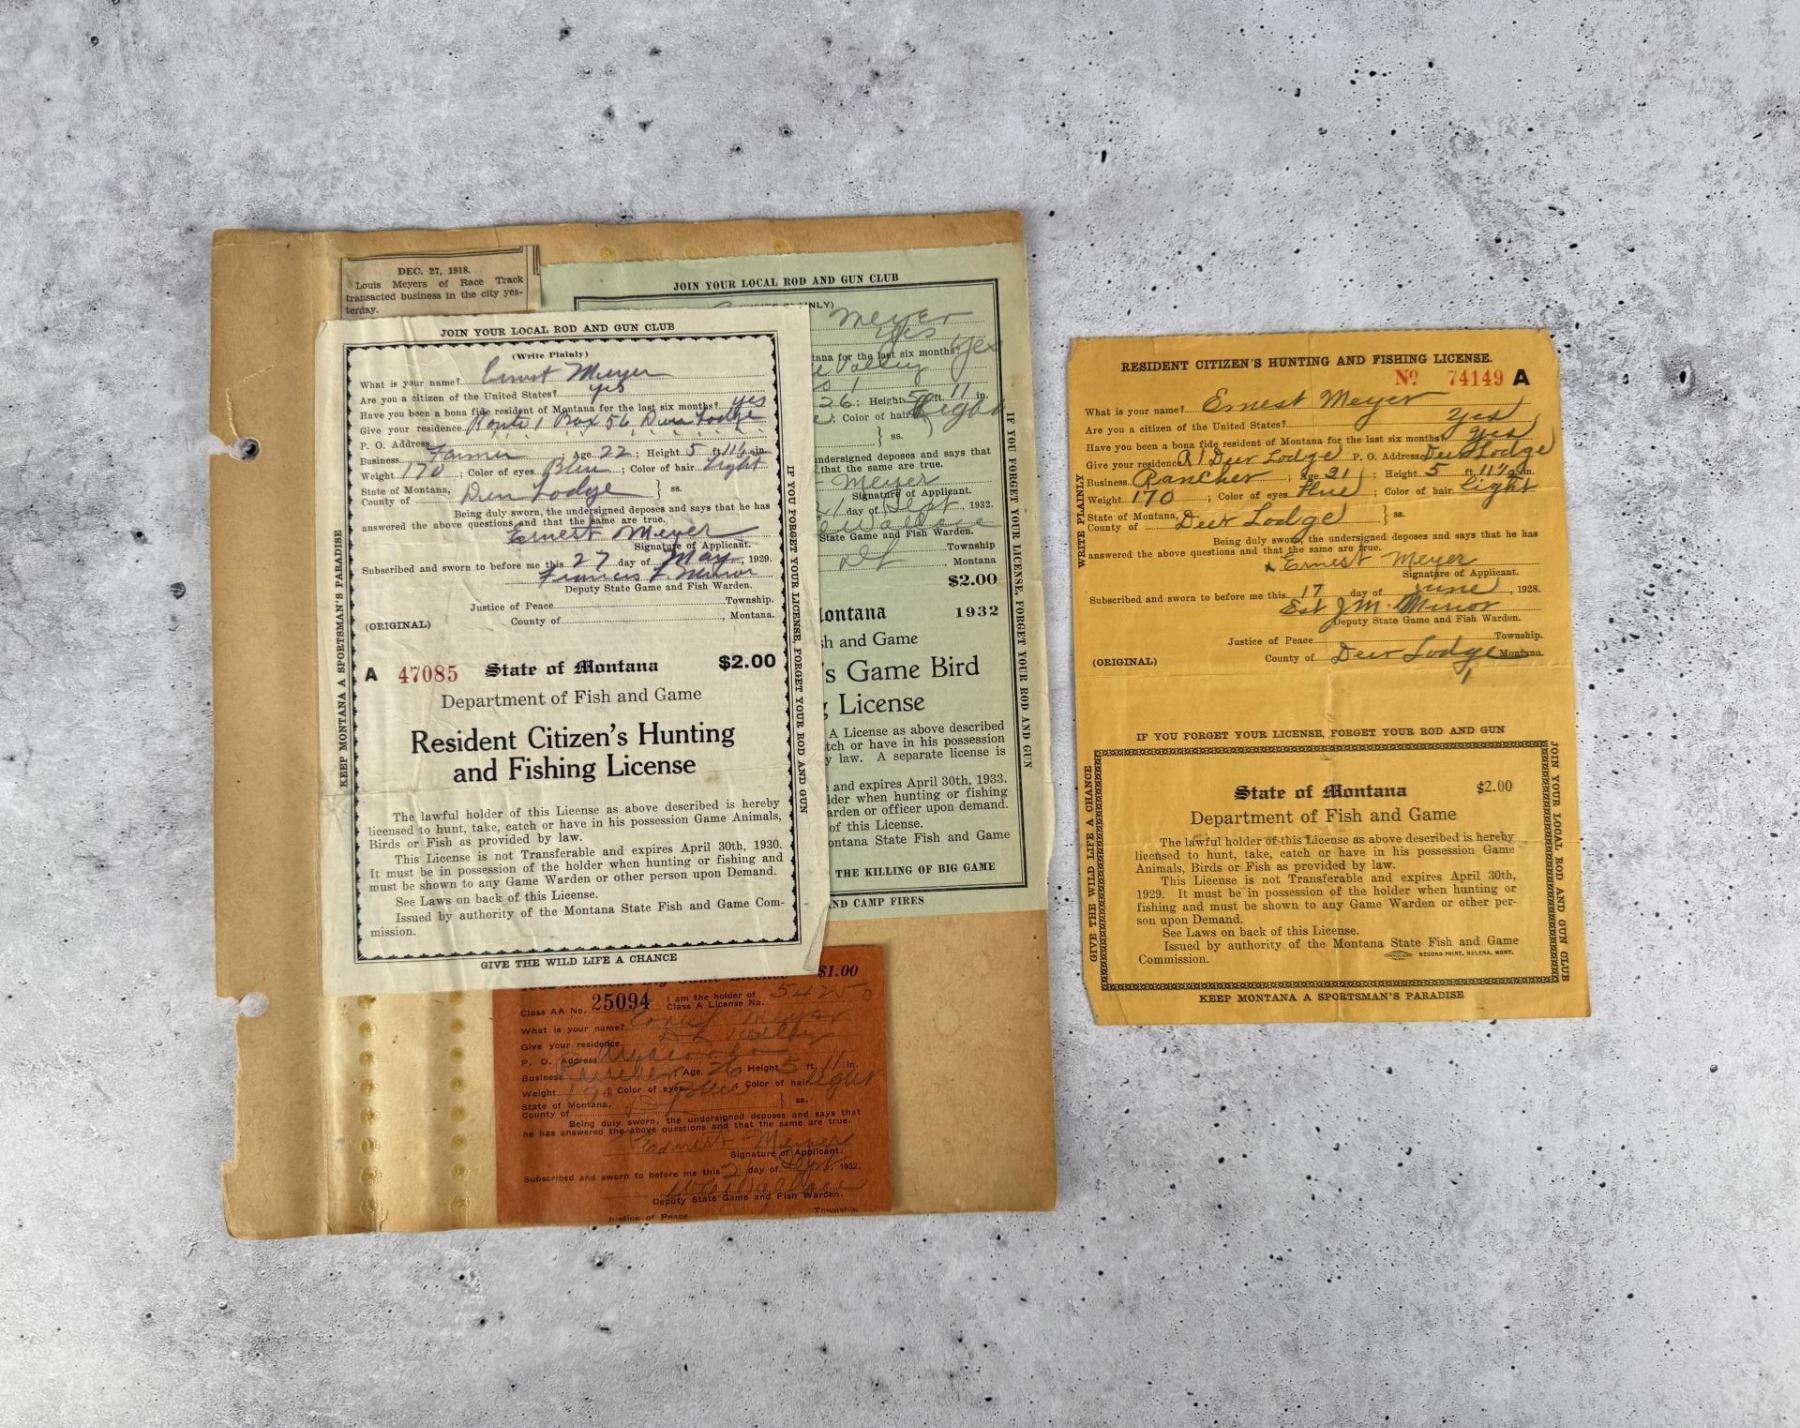 DEC. 27, 1918.
Louis Meyers of Race Track
transacted business in the city yes-
terday.
JOIN YOUR LOCAL ROD AND GUN CLUB
(Write Plainly)
What is your name? Ernest Meyer
Are you a citizen of the United States? yes
Have you been a bona fide resident of Montana for the last six months? yes
Give your residence Route 1 Box 56 Deer Lodge
P. O. Address
Business Farmer Age 22; Height 5 ft. 11½ in.
Weight 170; Color of eyes Blue; Color of hair light
State of Montana,
County of Deer Lodge } ss.
Being duly sworn, the undersigned deposes and says that he has
answered the above questions and that the same are true.
Ernest Meyer
Signature of Applicant.
Subscribed and sworn to before me this 27 day of May, 1929.
Francis L. Minor
Deputy State Game and Fish Warden.
Justice of Peace Township.
(ORIGINAL) County of , Montana.
A 47085 State of Montana $2.00
Department of Fish and Game
Resident Citizen's Hunting
and Fishing License
The lawful holder of this License as above described is hereby
licensed to hunt, take, catch or have in his possession Game Animals,
Birds or Fish as provided by law.
This License is not Transferable and expires April 30th, 1930.
It must be in possession of the holder when hunting or fishing and
must be shown to any Game Warden or other person upon Demand.
See Laws on back of this License.
Issued by authority of the Montana State Fish and Game Com-
mission.
GIVE THE WILD LIFE A CHANCE
KEEP MONTANA A SPORTSMAN'S PARADISE
IF YOU FORGET YOUR LICENSE, FORGET YOUR ROD AND GUN
JOIN YOUR LOCAL ROD AND GUN CLUB
Meyer
yes
tana for the last six months? yes
Valley
1
26; Height 5 ft. 11 in.
Color of hair light
} ss.
undersigned deposes and says that
that the same are true.
Meyer
Signature of Applicant.
day of Sept, 1932.
Wallace
State Game and Fish Warden.
DL Township
, Montana
$2.00
Montana 1932
sh and Game
's Game Bird
License
A License as above described
tch or have in his possession
y law. A separate license is
and expires April 30th, 1933.
lder when hunting or fishing
arden or officer upon demand.
of this License.
ontana State Fish and Game
THE KILLING OF BIG GAME
ND CAMP FIRES
IF YOU FORGET YOUR LICENSE, FORGET YOUR ROD AND GUN
$1.00
Class AA No. 25094 I am the holder of
Class A License No. 54250
What is your name? Ernest Meyer
Give your residence DL Valley
P. O. Address
Business Rancher Age 26 Height 5 ft. 11 in.
Weight 170 Color of eyes Blue Color of hair light
State of Montana,
County of DL } ss.
Being duly sworn, the undersigned deposes and says that
he has answered the above questions and that the same are true.
Ernest Meyer
Signature of Applicant.
Subscribed and sworn to before me this 2 day of Sept 1932.
Wallace
Deputy State Game and Fish Warden.
Justice of Peace Township
RESIDENT CITIZEN'S HUNTING AND FISHING LICENSE.
No 74149 A
What is your name? Ernest Meyer
Are you a citizen of the United States? Yes
Have you been a bona fide resident of Montana for the last six months? Yes
Give your residence R 1 Deer Lodge P. O. Address Deer Lodge
Business Rancher; Age 21; Height 5 ft. 11½ in.
Weight 170; Color of eyes Blue; Color of hair light
State of Montana,
County of Deer Lodge } ss.
Being duly sworn, the undersigned deposes and says that he has
answered the above questions and that the same are true.
x Ernest Meyer
Signature of Applicant.
Subscribed and sworn to before me this 17 day of June, 1928.
J M Minor
Deputy State Game and Fish Warden.
Justice of Peace Township.
(ORIGINAL) County of Deer Lodge Montana.
WRITE PLAINLY
IF YOU FORGET YOUR LICENSE, FORGET YOUR ROD AND GUN
State of Montana $2.00
Department of Fish and Game
The lawful holder of this License as above described is hereby
licensed to hunt, take, catch or have in his possession Game
Animals, Birds or Fish as provided by law.
This License is not Transferable and expires April 30th,
1929. It must be in possession of the holder when hunting or
fishing and must be shown to any Game Warden or other per-
son upon Demand.
See Laws on back of this License.
Issued by authority of the Montana State Fish and Game
Commission.
RECORD PRINT, HELENA, MONT.
GIVE THE WILD LIFE A CHANCE
JOIN YOUR LOCAL ROD AND GUN CLUB
KEEP MONTANA A SPORTSMAN'S PARADISE